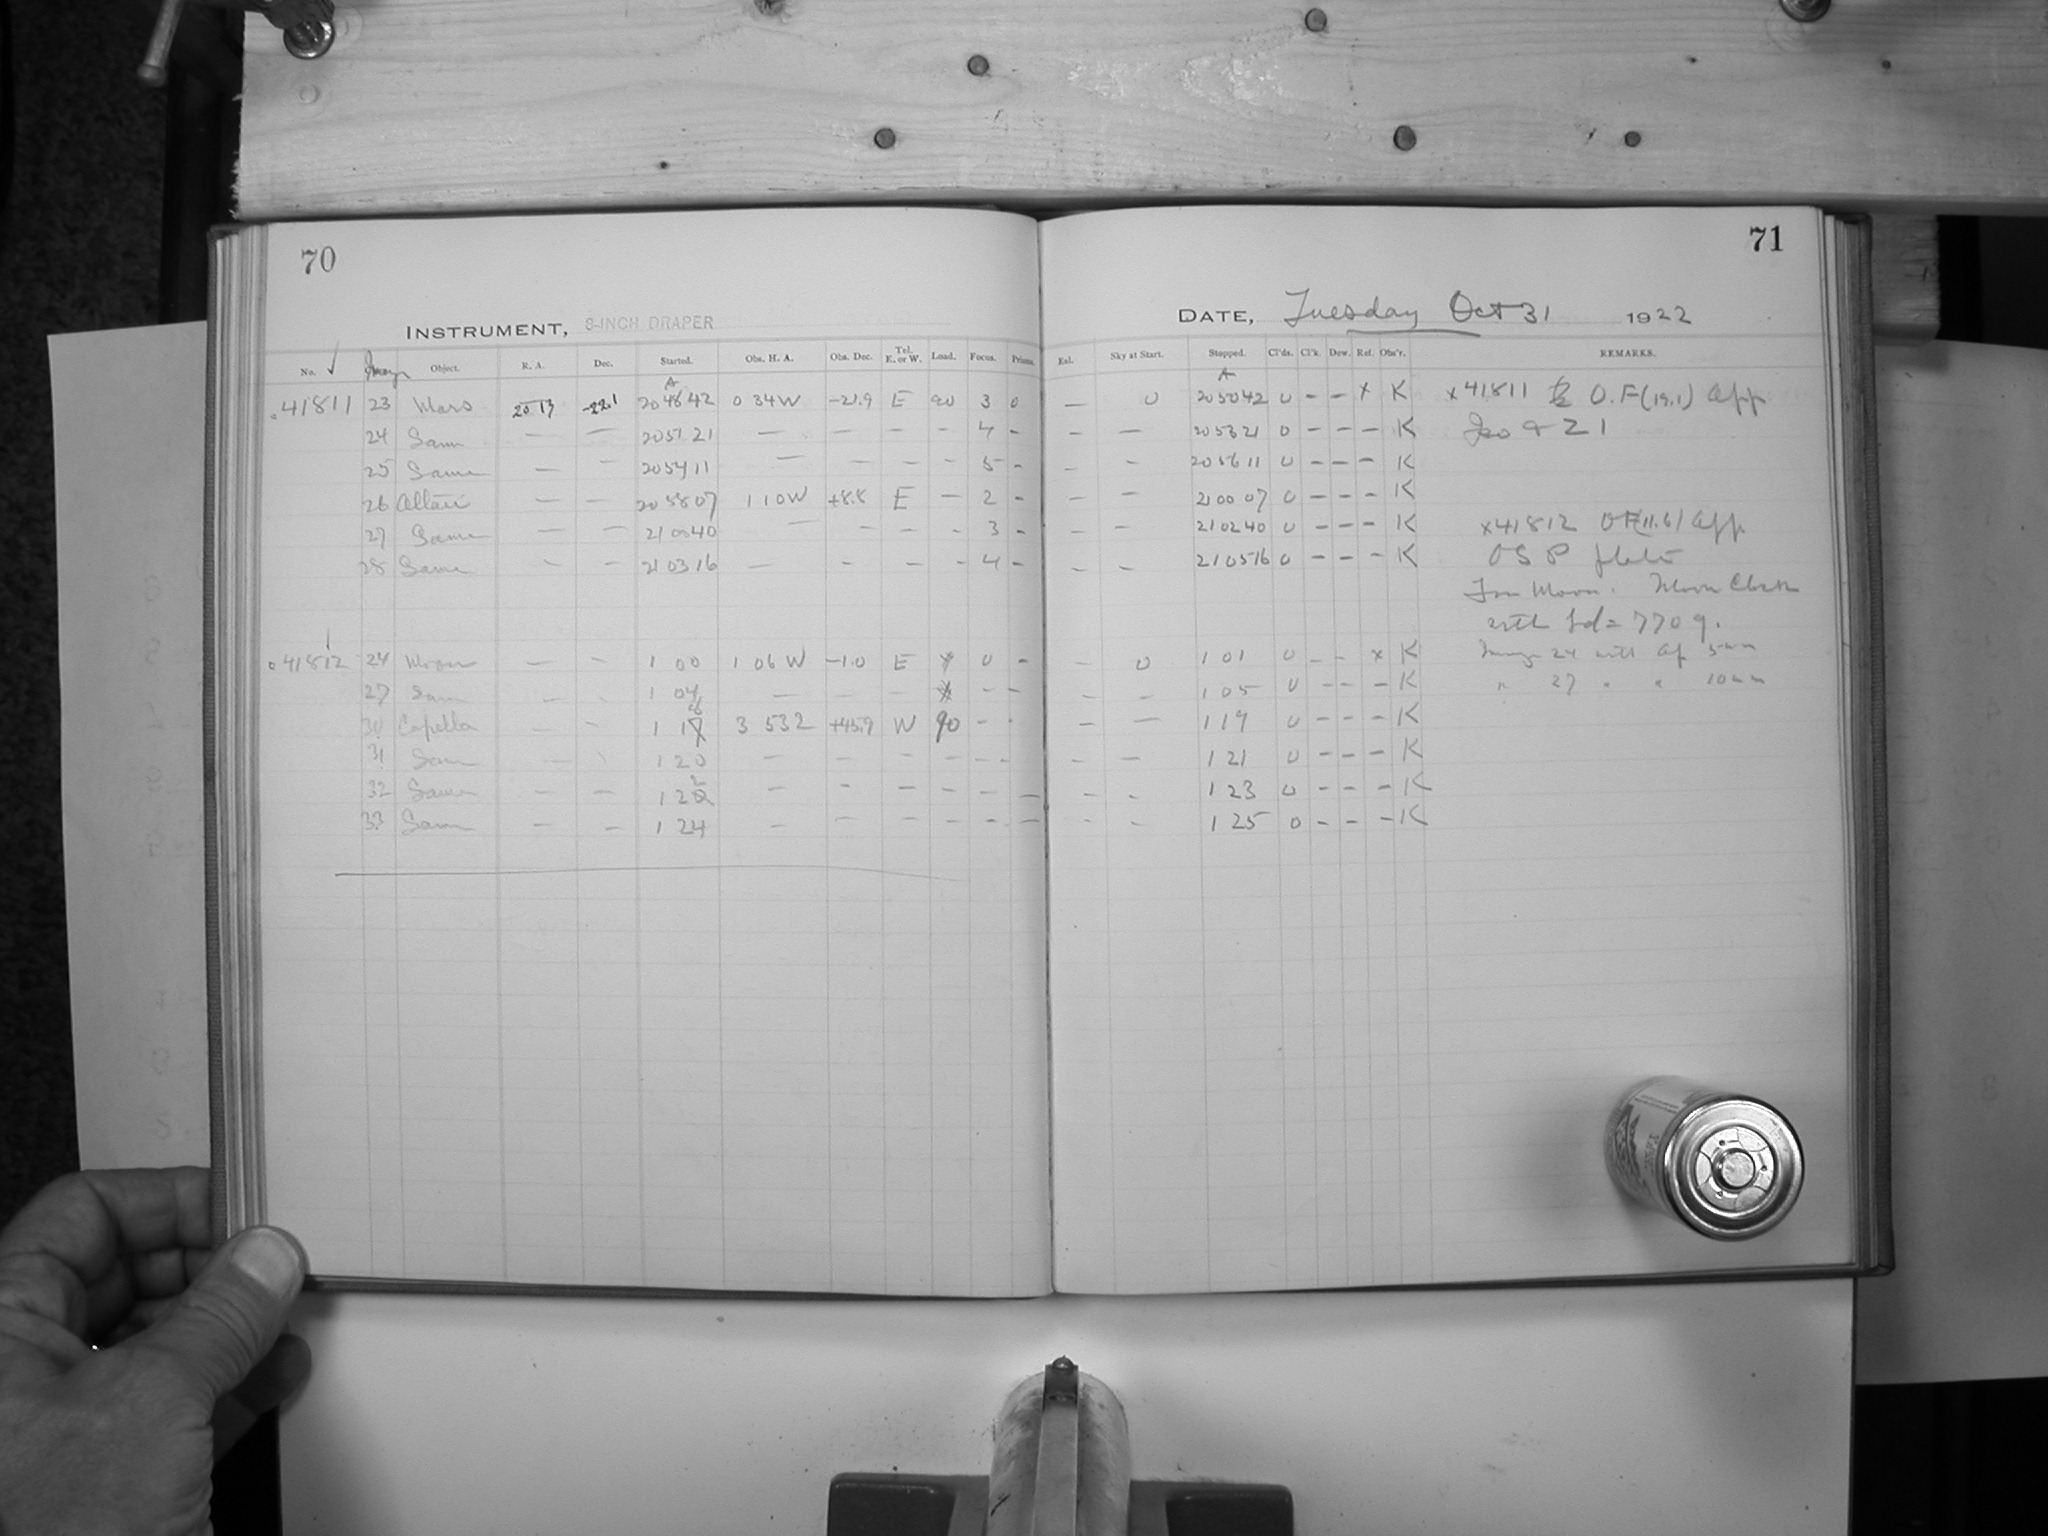 70
71
INSTRUMENT, 8-INCH DRAPER
DATE, Tuesday Oct 31 1922
No. Image Object. R. A. Dec. Started. Obs. H. A. Obs. Dec. Tel. E. or W. Load. Focus. Prisms. Exl. Sky at Start. Stopped. Cl'ds. Cl'k. Dew. Ref. Obs'r. REMARKS.
41811 23 Mars 20 13 -22.1 20 48 42 0 34 W -21.9 E 90 3 0 — 0 20 50 42 0 - - x K x 41811 O.F (19.1) App
24 Same — — 20 51 21 — — - - 4 - - — 20 53 21 0 - - - K
25 Same — — 20 54 11 — — - - 5 - - - 20 56 11 0 - - - K
26 Altair — — 20 58 07 1 10 W +8.8 E — 2 - - — 21 00 07 0 - - - K
27 Same — — 21 00 40 — - - - 3 - - — 21 02 40 0 - - - K x 41812 OF(11.6) App
28 Same — - 21 03 16 — - - - 4 - - - 21 05 16 0 - - - K O S P plate
Moon. Moon Clock
with Ld = 770 g.
41812 24 Moon — - 1 00 1 06 W -1.0 E 0 - - 0 1 01 0 - - x K Image 24 with Ap 5mm
27 Same - - 1 04 — — - - - - - 1 05 0 - - - K " 27 " " 10mm
30 Capella - - 1 18 3 53 2 +45.9 W 90 - - - — 1 19 0 - - - K
31 Same - - 1 20 — - - - - - - — 1 21 0 - - - K
32 Same — — 1 22 - - - - - - - - 1 23 0 - - - K
33 Same — — 1 24 - - - - - - - - 1 25 0 - - - K